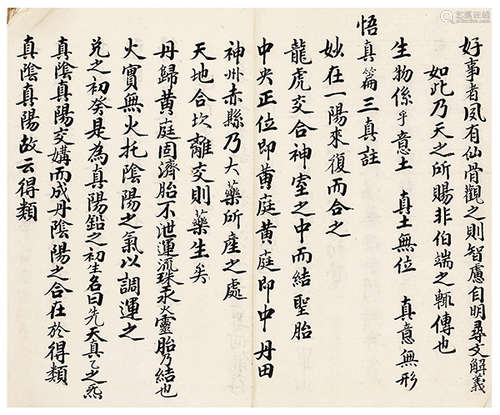 好事者夙有仙骨觀之則智慮自明尋文解義
如此乃天之所賜非伯端之輒傳也
生物係乎意土　真土無位　真意無形
悟真篇三真註
妙在一陽來復而合之
龍虎交合神室之中而結聖胎
中央正位即黃庭黃庭即中丹田
神州赤縣乃大藥所產之處
天地合坎離交則藥生矣
丹歸黃庭固濟胎不泄運流珠汞火靈胎乃結也
火實無火托陰陽之氣以調運之
兌之初癸是為真陽鉛之初生名曰先天真乙之炁
真陰真陽交媾而成丹陰陽之合在於得類
真陰真陽故云得類